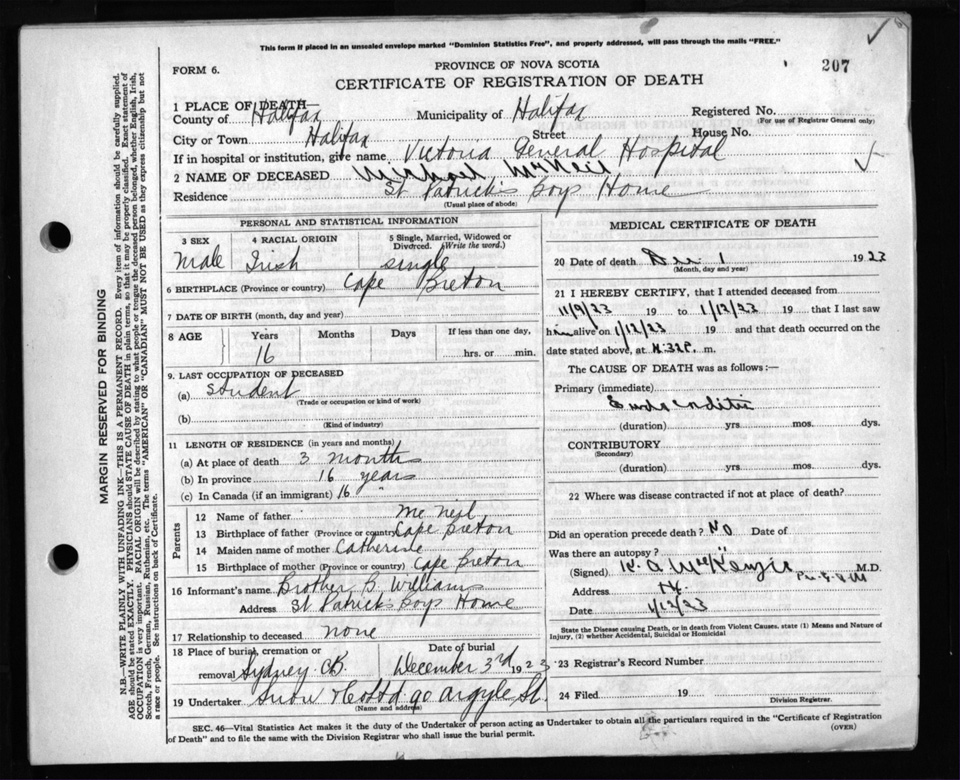 This form if placed in an unsealed envelope marked "Dominion Statistics Free", and properly addressed, will pass through the mails "FREE."
FORM 6.
PROVINCE OF NOVA SCOTIA
207
CERTIFICATE OF REGISTRATION OF DEATH
1 PLACE OF DEATH—
County of Halifax Municipality of Halifax Registered No.
(For use of Registrar General only)
City or Town Halifax Street House No.
If in hospital or institution, give name Victoria General Hospital
2 NAME OF DECEASED Michael McNeil
Residence St Patrick's Boys Home
(Usual place of abode)
PERSONAL AND STATISTICAL INFORMATION
3 SEX Male
4 RACIAL ORIGIN Irish
5 Single, Married, Widowed or Divorced. (Write the word.) single
6 BIRTHPLACE (Province or country) Cape Breton
7 DATE OF BIRTH (month, day and year)
8 AGE Years 16 Months Days If less than one day, hrs. or min.
9. LAST OCCUPATION OF DECEASED
(a) Student
(Trade or occupation or kind of work)
(b)
(Kind of industry)
11 LENGTH OF RESIDENCE (in years and months)
(a) At place of death 3 months
(b) In province 16 years
(c) In Canada (if an immigrant) 16 "
Parents
12 Name of father Mc Neil
13 Birthplace of father (Province or country) Cape Breton
14 Maiden name of mother Catherine
15 Birthplace of mother (Province or country) Cape Breton
16 Informant's name Brother B. Williams
Address St Patrick's Boys Home
17 Relationship to deceased none
18 Place of burial, cremation or removal Sydney CB.
Date of burial December 3rd 1923
19 Undertaker Snow & Co Ltd 90 Argyle St.
(Name and address)
MEDICAL CERTIFICATE OF DEATH
20 Date of death Dec 1 1923
(Month, day and year)
21 I HEREBY CERTIFY, that I attended deceased from
11/9/23 19 to 1/12/23 19 that I last saw
him alive on 1/12/23 19 and that death occurred on the
date stated above, at 4:32 P. m.
The CAUSE OF DEATH was as follows:—
Primary (immediate)
Endocarditis
(duration) yrs mos. dys.
CONTRIBUTORY
(Secondary)
(duration) yrs. mos. dys.
22 Where was disease contracted if not at place of death?
Did an operation precede death? No Date of
Was there an autopsy? "
(Signed) K. A. McKenzie M.D.
Address Hx
Date 1/12/23
State the Disease causing Death, or in death from Violent Causes, state (1) Means and Nature of
Injury, (2) whether Accidental, Suicidal or Homicidal
23 Registrar's Record Number
24 Filed 19
Division Registrar.
SEC. 46—Vital Statistics Act makes it the duty of the Undertaker or person acting as Undertaker to obtain all the particulars required in the "Certificate of Registration
of Death" and to file the same with the Division Registrar who shall issue the burial permit.
(OVER)
MARGIN RESERVED FOR BINDING
N.B.—WRITE PLAINLY WITH UNFADING INK—THIS IS A PERMANENT RECORD. Every item of information should be carefully supplied.
AGE should be stated EXACTLY. PHYSICIANS should STATE CAUSE OF DEATH in plain terms, so that it may be properly classified. Exact statement of
OCCUPATION is very important. RACIAL ORIGIN will be described by stating to what people or tongue the deceased person belonged, whether English, Irish,
Scotch, French, German, Russian, Ruthenian, etc. The terms "AMERICAN" OR "CANADIAN" MUST NOT BE USED as they express citizenship but not
a race or people. See instructions on back of Certificate.